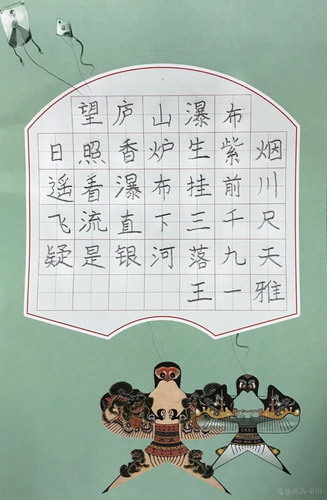 望庐山瀑布
日照香炉生紫烟
遥看瀑布挂前川
飞流直下三千尺
疑是银河落九天
王一雅